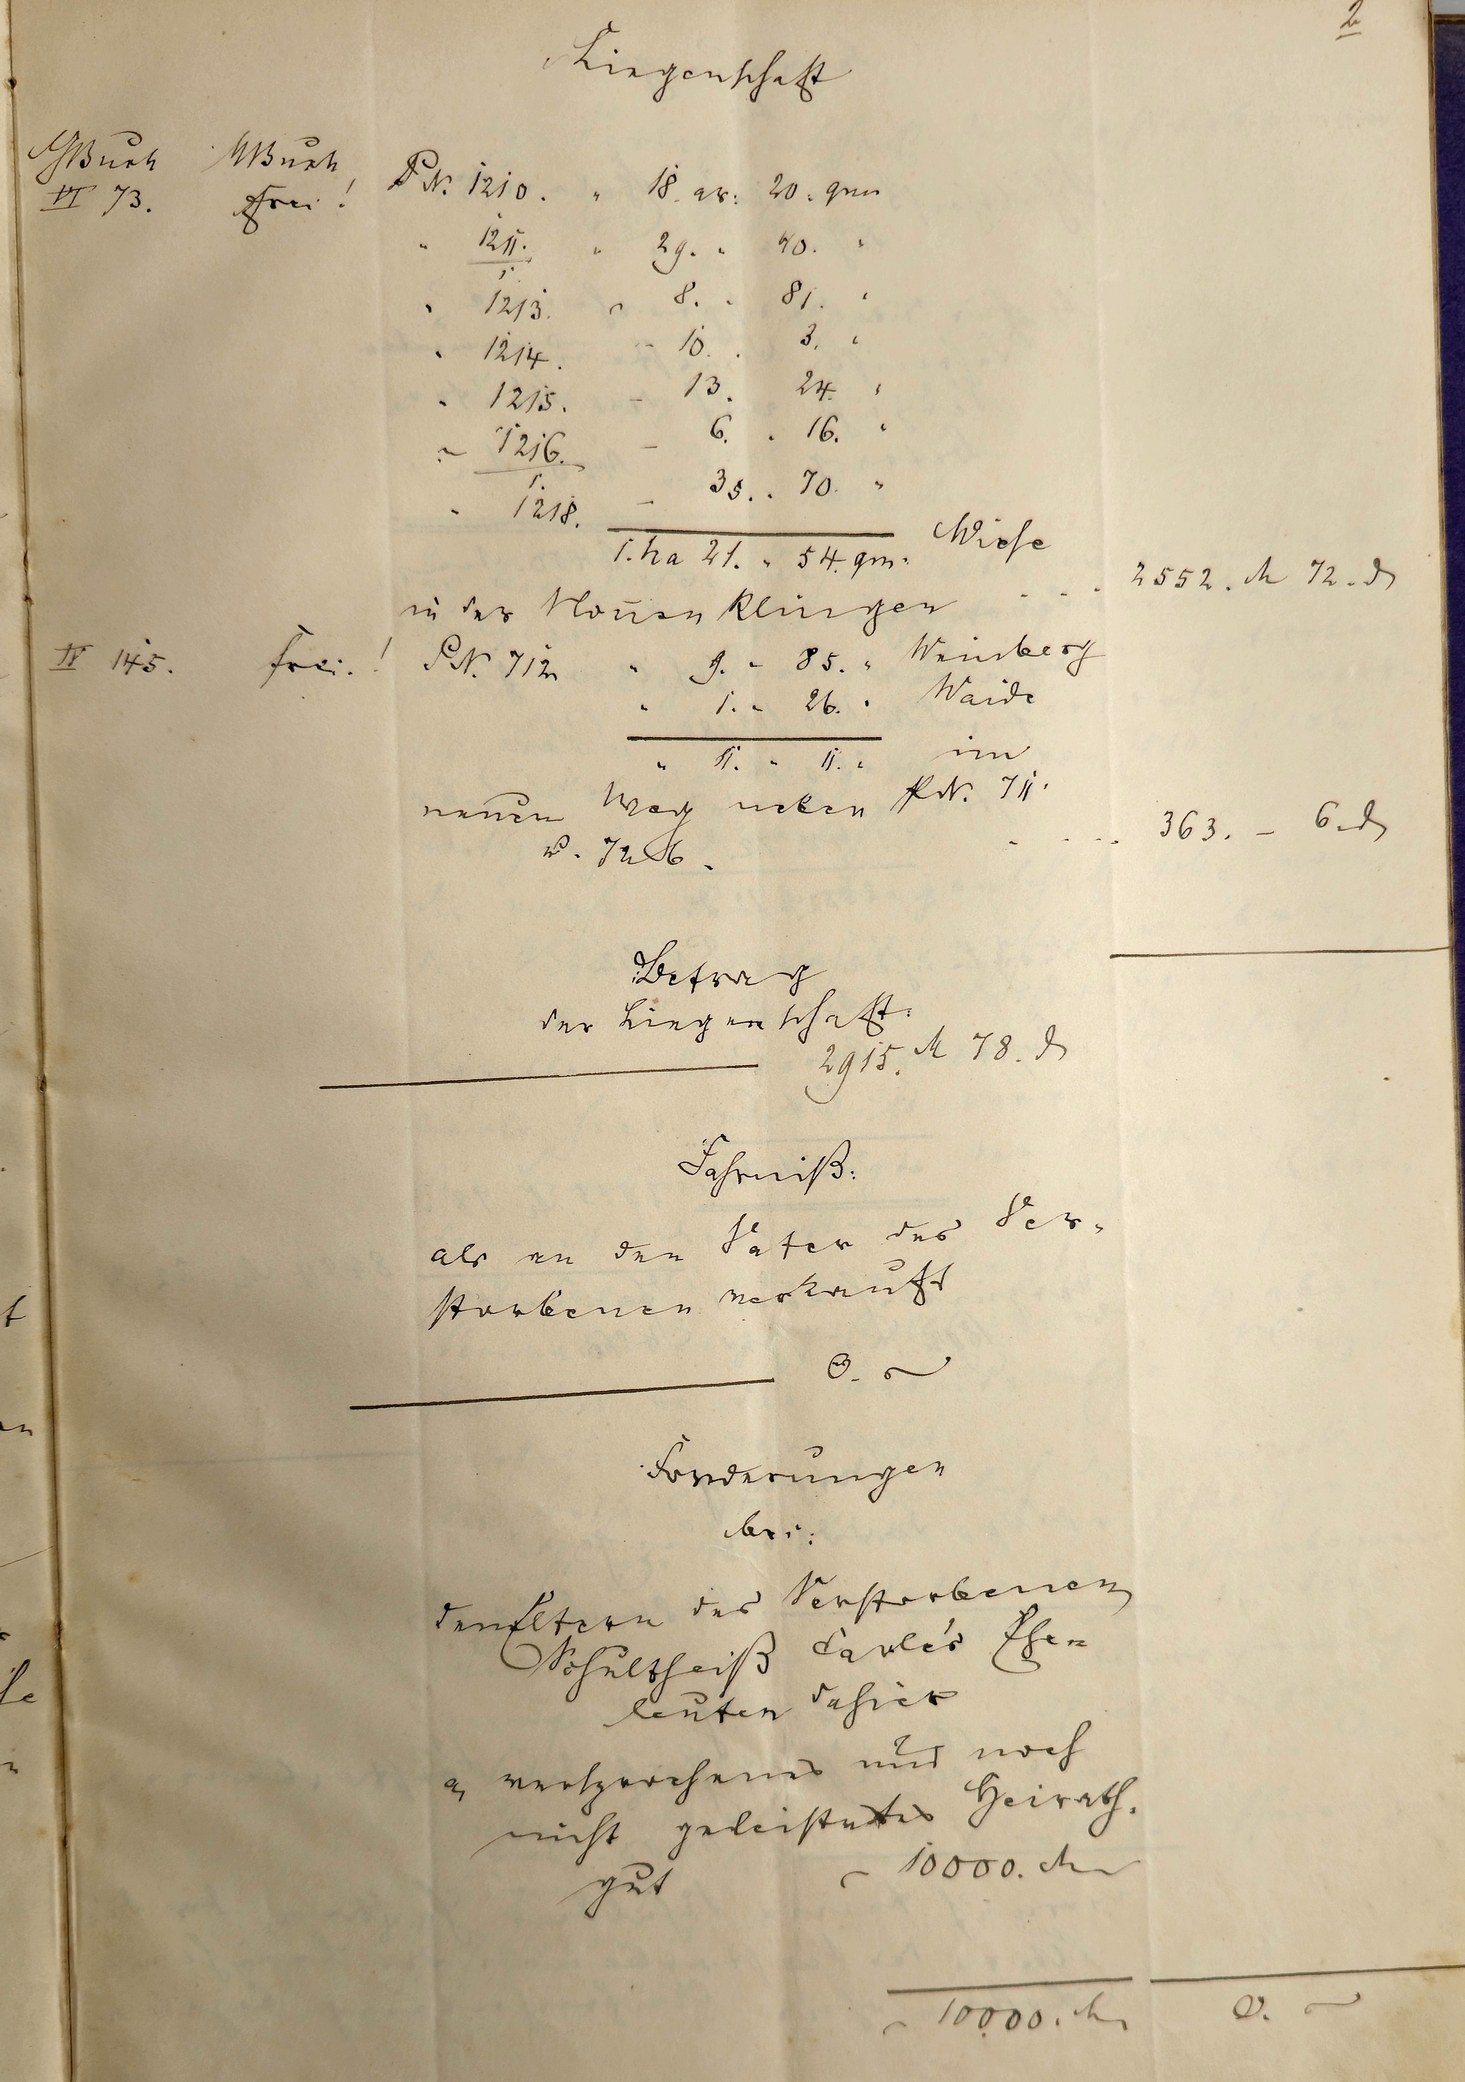 2
Liegenschaft
GBuch UBuch
VI 73. frei! PN. 1210. " 18. ar: 20. qm
" 1211. " 29. " 40. "
1.
" 1213. " 8. " 81. "
" 1214. - 10. . 3. "
" 1215. - 13. 24. "
" 1216. - 6. " 16. "
1.
" 1218. - 35. " 70. "
1. ha 21. " 54. qm. Wiese
in der Klingen . . . 2552. M 72. d
IV 145. frei.! PN. 712 " 9. " 85. " Weinberg
" 1. " 26. " Waide
" 11. " 11. " im
neuen Weg neben PN. 711.
u. 726. . . . . 363. - 6. d
Betrag
der Liegenschaft:
2915. M 78. d
Fahrniß:
als an den Vater des Ver-
storbenen verkauft
0. ~
Forderungen
bei:
den Eltern des Verstorbenen
Schultheiß Carle's Ehe-
leuten dahier
a, versprochenes und noch
nicht geleistetes Heirath-
gut ~ 10000. M
~ 10000. M 0. ~